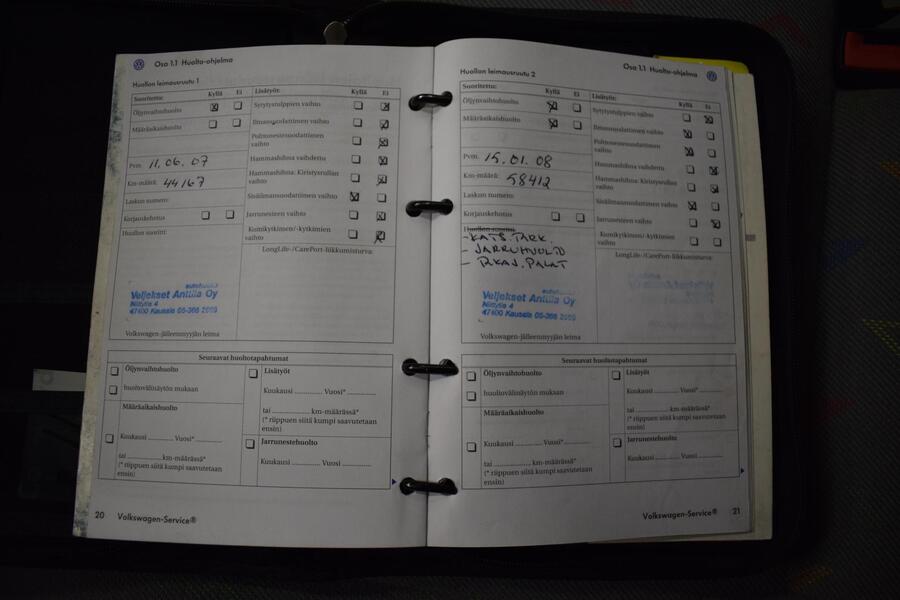 Osa 1.1 Huolto-ohjelma
Huollon leimausruutu 1
Suoritettu: Kyllä Ei
Öljynvaihtohuolto
Määräaikaishuolto
Pvm. 11.06.07
Km-määrä: 44167
Laskun numero:
Korjauskehotus
Huollon suoritti:
Veljekset Anttila Oy
Niittytie 4
47400 Kausala 05-366 2059
Volkswagen-jälleenmyyjän leima
Lisätyöt: Kyllä Ei
Sytytystulppien vaihto
Ilmansuodattimen vaihto
Polttonestesuodattimen
vaihto
Hammashihna vaihdettu
Hammashihna: Kiristysrullan
vaihto
Sisäilmansuodattimen vaihto
Jarrunesteen vaihto
Kumikytkimen/-kytkimien
vaihto
LongLife-/CarePort-liikkumisturva:
Seuraavat huoltotapahtumat
Öljynvaihtohuolto
huoltovälinäytön mukaan
Määräaikaishuolto
Kuukausi ............ Vuosi* ............
tai ............ km-määrässä*
(* riippuen siitä kumpi saavutetaan
ensin)
Lisätyöt
Kuukausi ............ Vuosi* ............
tai ............ km-määrässä*
(* riippuen siitä kumpi saavutetaan
ensin)
Jarrunestehuolto
Kuukausi ............ Vuosi ............
20 Volkswagen-Service®
Osa 1.1 Huolto-ohjelma
Huollon leimausruutu 2
Suoritettu: Kyllä Ei
Öljynvaihtohuolto
Määräaikaishuolto
Pvm. 15.01.08
Km-määrä: 58412
Laskun numero:
Korjauskehotus
Huollon suoritti:
- KATS. TARK.
- JARRUHUOLTO
Veljekset Anttila Oy
Niittytie 4
47400 Kausala 05-366 2059
Volkswagen-jälleenmyyjän leima
Lisätyöt: Kyllä Ei
Sytytystulppien vaihto
Ilmansuodattimen vaihto
Polttonestesuodattimen
vaihto
Hammashihna vaihdettu
Hammashihna: Kiristysrullan
vaihto
Sisäilmansuodattimen vaihto
Jarrunesteen vaihto
Kumikytkimen/-kytkimien
vaihto
LongLife-/CarePort-liikkumisturva:
Seuraavat huoltotapahtumat
Öljynvaihtohuolto
huoltovälinäytön mukaan
Määräaikaishuolto
Kuukausi ............ Vuosi* ............
tai ............ km-määrässä*
(* riippuen siitä kumpi saavutetaan
ensin)
Lisätyöt
Kuukausi ............ Vuosi* ............
tai ............ km-määrässä*
(* riippuen siitä kumpi saavutetaan
ensin)
Jarrunestehuolto
Kuukausi ............ Vuosi ............
Volkswagen-Service® 21